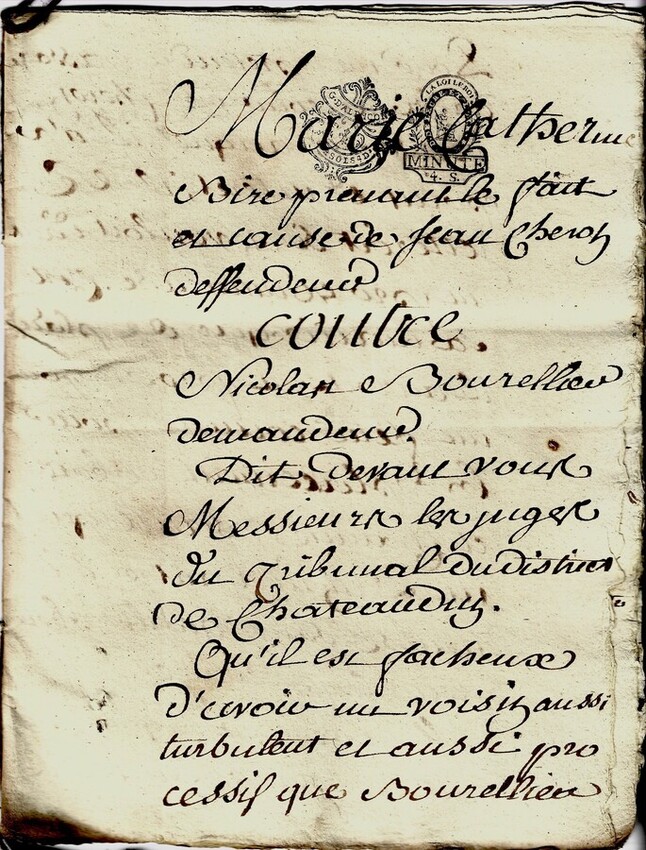 Marie Catherine
Bire prenant le fait
et cause de Jean Cheron
deffendeur
contre
Nicolas Bourellier
demandeur.
Dit devant vous
Messieurs les juges
du Tribunal du district
de Chateaudun.
Qu'il est facheux
D'avoir un voisin aussi
turbulent et aussi pro
cessif que Bourellier
LA LOI LE ROI
MINUTE
4. S.